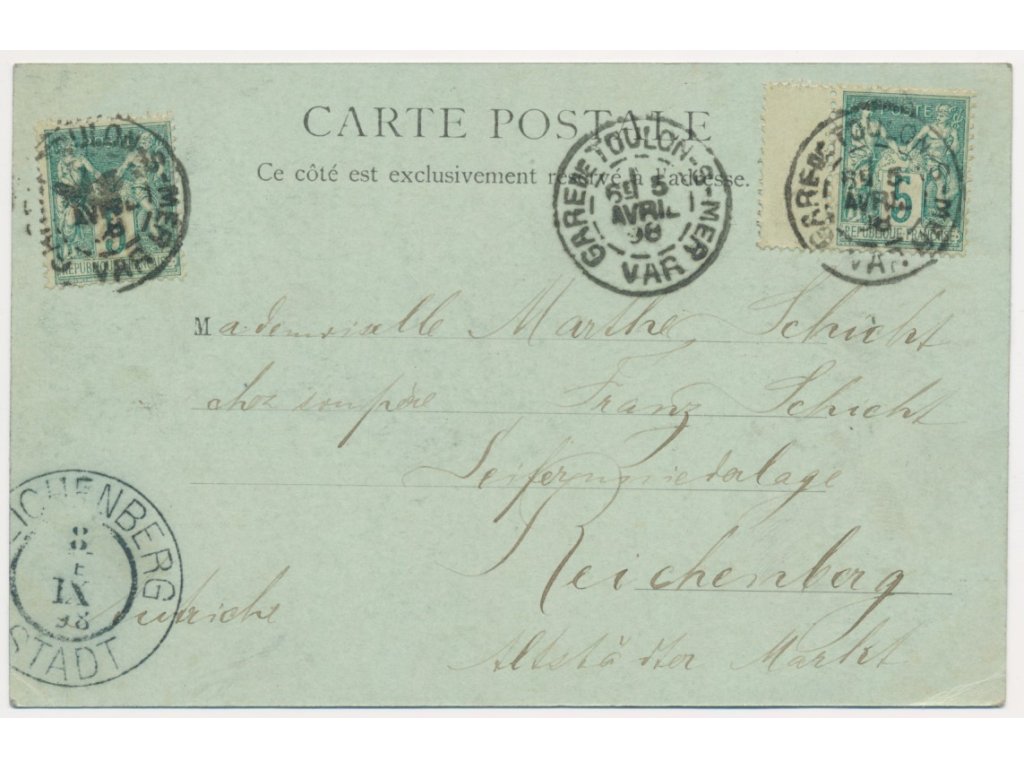 CARTE POSTALE
Ce côté est exclusivement réservé à l'adresse.
TOULON-S-MER
VAR
5
RÉPUBLIQUE FRANÇAISE
GARE DE TOULON-S-MER
5
AVRIL
98
VAR
GARE DE TOULON-S-MER
5
AVRIL
VAR
5
RÉPUBLIQUE FRANÇAISE
Mademoiselle Marthe Schicht
chez son père Franz Schicht
Seifenniederlage
Reichenberg
Autriche
Altstädter Markt
REICHENBERG
8
IX
98
STADT